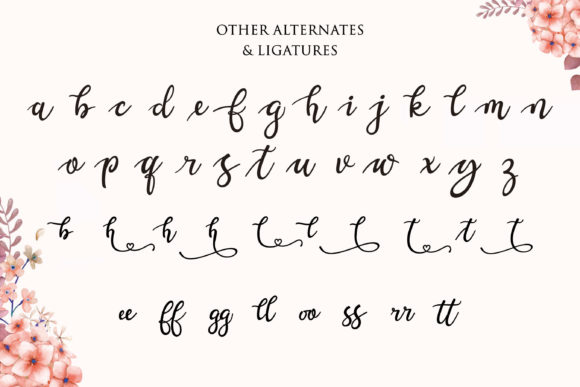 OTHER ALTERNATES
& LIGATURES
a b c d e f g h i j k l m n
o p q r s t u v w x y z
b h h h l l l t t t
ee ff gg ll oo ss rr tt